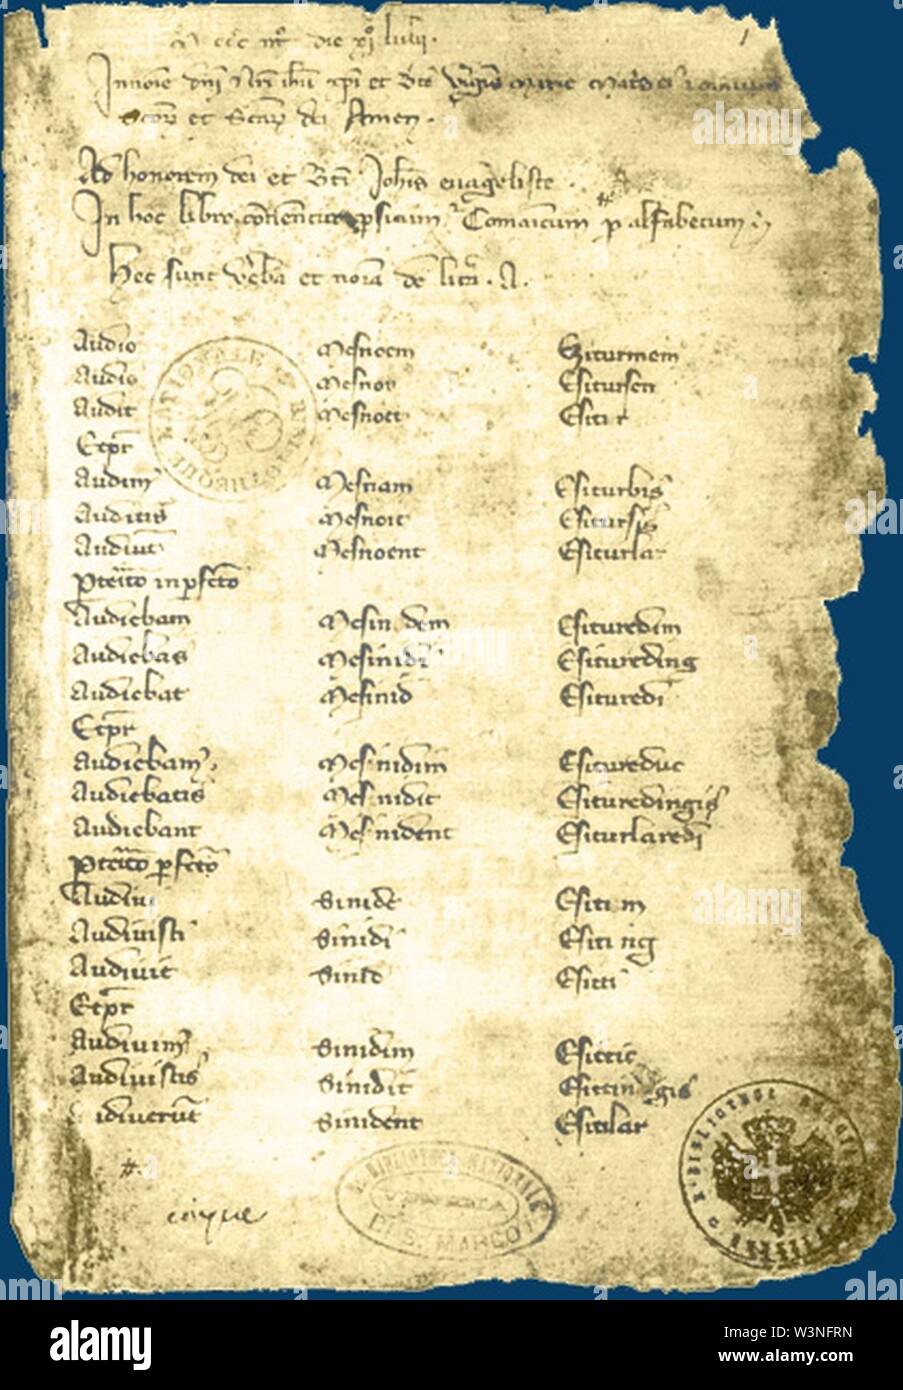 M ccc iij die xj Julij.
In noie dni nri ihu xpi et bte Virgis Marie Matris
Scoru et Scaru dei Amen.
Ad honorem dei et bti Johis evageliste.
In hoc libro continentur persicum et Comanicum p alfabetum
Hec sunt verba et noia de litra. A.
Audio Mesnoem Esiturmem
Audis Mesnoy Esitursen
Audit Mesnoet Esitir
Et pr
Audim Mesnoam Esiturbis
Auditis Mesnoit Esitursis
Audiut Mesnoent Esiturlar
Preteito inpfecto
Audiebam Mesinidem Esituredim
Audiebas Mesinidi Esitureding
Audiebat Mesinid Esituredi
Et pr
Audiebam Mesinidim Esitureduc
Audiebatis Mesinidit Esituredingis
Audiebant Mesinident Esiturlaredi
Preteito pfecto
Audiui Sinide Esitim
Audiuisti Sinidi Esiting
Audiuit Sinid Esitti
Et pr
Audiuim Sinidim Esittic
Audiuistis Sinidit Esittingis
Audiuerut Sinident Esitilar
R. BIBLIOTECA NAZIONALE
DI S. MARCO
VENEZIA
BIBLIOTHEQUE NATIONALE
alamy
W3NFRN
www.alamy.com